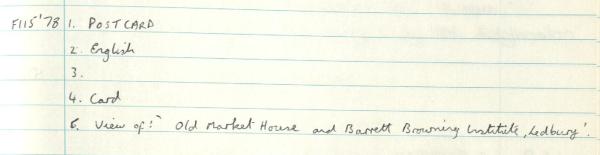 F115'78 1. POSTCARD
2. English
3.
4. Card
5. View of:- 'Old Market House and Barrett Browning Institute, Ledbury'.